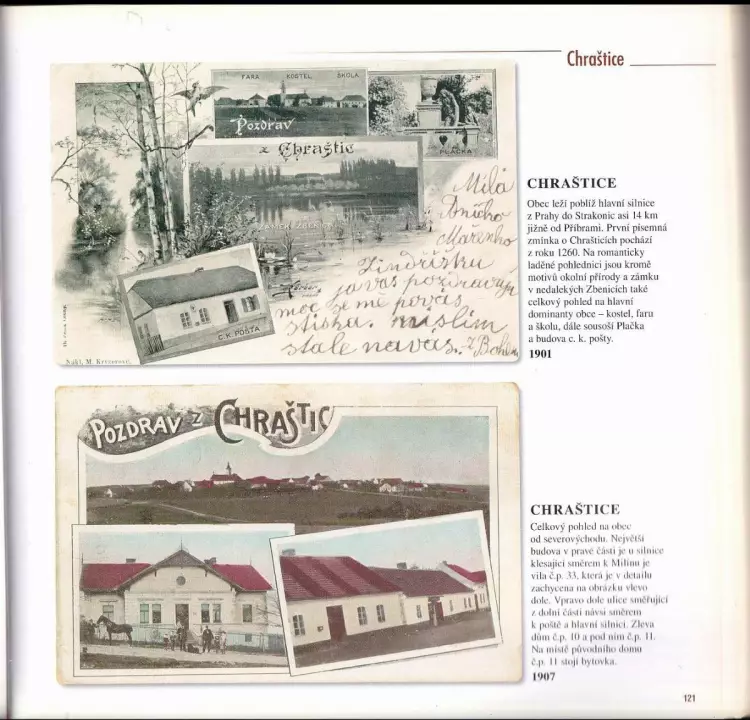 Chraštice
FARA KOSTEL ŠKOLA
Pozdrav
z Chraštic
PLAČKA
ZÁMEK ZBENICE
C.K. POŠTA
Nákl. M.
Milá
Mařenko
Jindřišku
já vás pozdravuji
moc že mě po vás
stíská. mislím
stále na vás. z Bohem
CHRAŠTICE
Obec leží poblíž hlavní silnice
z Prahy do Strakonic asi 14 km
jižně od Příbrami. První písemná
zmínka o Chrašticích pochází
z roku 1260. Na romanticky
laděné pohlednici jsou kromě
motivů okolní přírody a zámku
v nedalekých Zbenicích také
celkový pohled na hlavní
dominanty obce – kostel, faru
a školu, dále sousoší Plačka
a budova c. k. pošty.
1901
POZDRAV Z CHRAŠTIC
CHRAŠTICE
Celkový pohled na obec
od severovýchodu. Největší
budova v pravé části je u silnice
klesající směrem k Milínu je
vila č.p. 33, která je v detailu
zachycena na obrázku vlevo
dole. Vpravo dole ulice směřující
z dolní části návsi směrem
k poště a hlavní silnici. Zleva
dům č.p. 10 a pod ním č.p. 11.
Na místě původního domu
č.p. 11 stojí bytovka.
1907
121